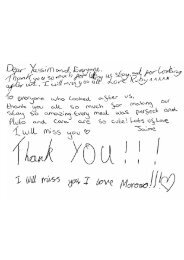 Dear Yassin and Everyone,
Thank you so much for letting us stay and for looking
after us. I will miss you
To everyone who looked after us,
thank you all so much for making our
stay so amazing every meal was perfect and
Pluto and are so cute! Lots of love
I will miss you Jaime
Thank YOU!!!
I will miss you, I love Morocco!!!